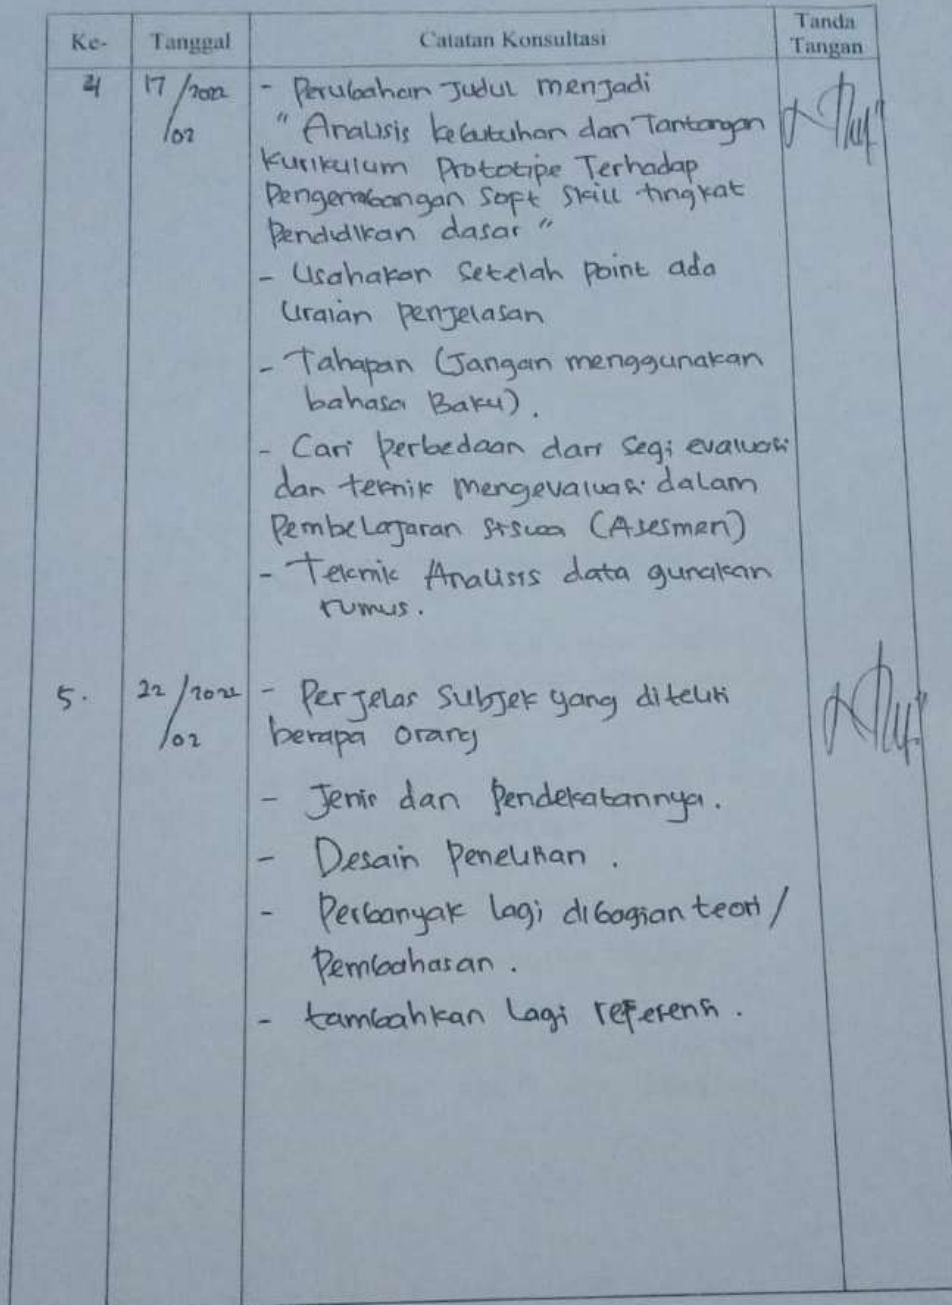 Ke- Tanggal Catatan Konsultasi Tanda Tangan
4 17/2022 - Perubahan Judul menjadi
/02 " Analisis kebutuhan dan Tantangan
Kurikulum Prototipe Terhadap
Pengembangan Soft Skill tingkat
Pendidikan dasar "
- Usahakan Setelah Point ada
Uraian penjelasan
- Tahapan (Jangan menggunakan
bahasa Baku).
- Cari perbedaan dari segi evaluasi
dan teknik mengevaluasi dalam
Pembelajaran siswa (Asesmen)
- Teknik Analisis data gunakan
rumus.
5. 22/2022 - Perjelas Subjek yang diteliti
/02 berapa orang
- Jenis dan Pendekatannya.
- Desain Penelitian.
- Perbanyak lagi dibagian teori/
Pembahasan.
- tambahkan lagi referensi.